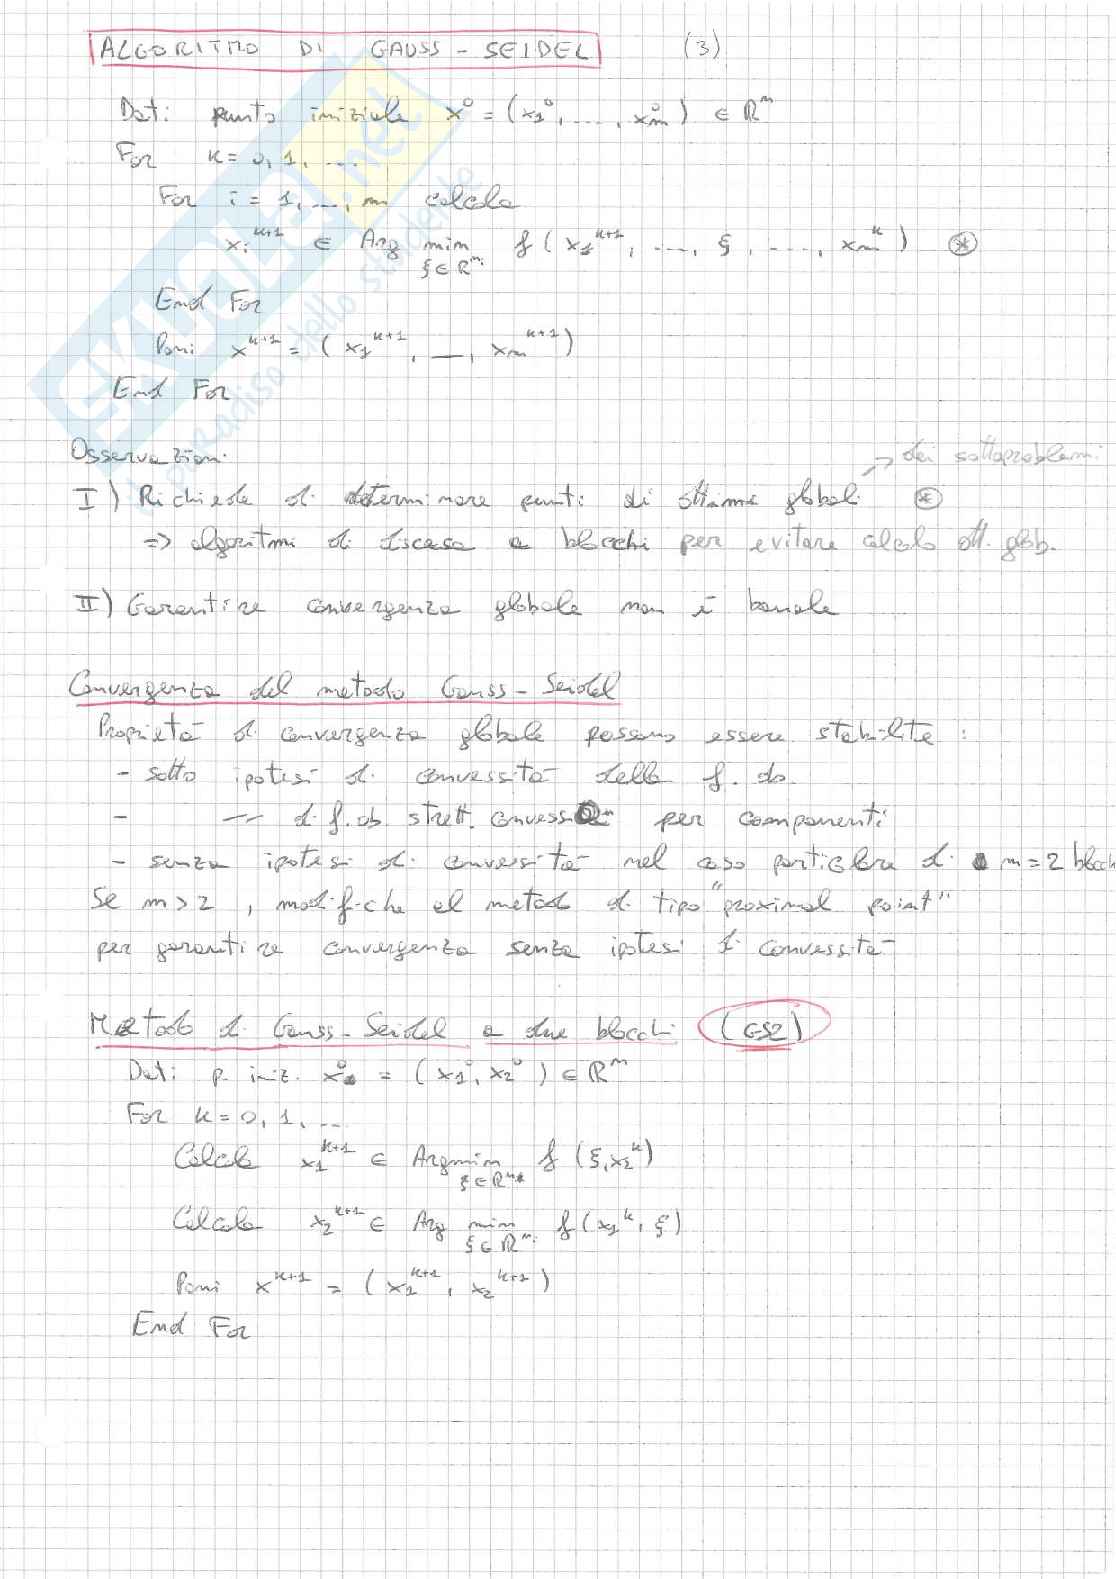 ALGORITMO DI GAUSS - SEIDEL (3)
Dati: punto iniziale x⁰ = (x₁⁰, ..., xₘ⁰) ∈ ℝⁿ
For k = 0, 1, ...
For i = 1, ..., m calcola
xᵢᵏ⁺¹ ∈ Arg min f(x₁ᵏ⁺¹, ..., ξ, ..., xₘᵏ) (*)
ξ ∈ ℝⁿⁱ
End For
Poni xᵏ⁺¹ = (x₁ᵏ⁺¹, ..., xₘᵏ⁺¹)
End For
Osservazioni
→ dei sottoproblemi
I) Richiede di determinare punti di ottimo globali (*)
=> algoritmi di discesa a blocchi per evitare calcolo ott. glob.
II) Garantire convergenza globale non è banale
Convergenza del metodo Gauss - Seidel
Proprietà di convergenza globale possono essere stabilite :
- sotto ipotesi di convessità della f. ob.
- -- di f. ob. strett. convessa per componenti
- senza ipotesi di convessità nel caso particolare di m = 2 blocchi
Se m > 2 , modifiche al metodo di tipo "proximal point"
per garantire convergenza senza ipotesi di convessità
Metodo di Gauss - Seidel a due blocchi (GS2)
Dati: p. iniz. x⁰ = (x₁⁰, x₂⁰) ∈ ℝⁿ
For k = 0, 1, ...
Calcola x₁ᵏ⁺¹ ∈ Argmin f(ξ, x₂ᵏ)
ξ ∈ ℝⁿ¹
Calcola x₂ᵏ⁺¹ ∈ Arg min f(x₁ᵏ, ξ)
ξ ∈ ℝⁿⁱ
Poni xᵏ⁺¹ = (x₁ᵏ⁺¹, x₂ᵏ⁺¹)
End For
SKUOLA.net
il paradiso dello studente